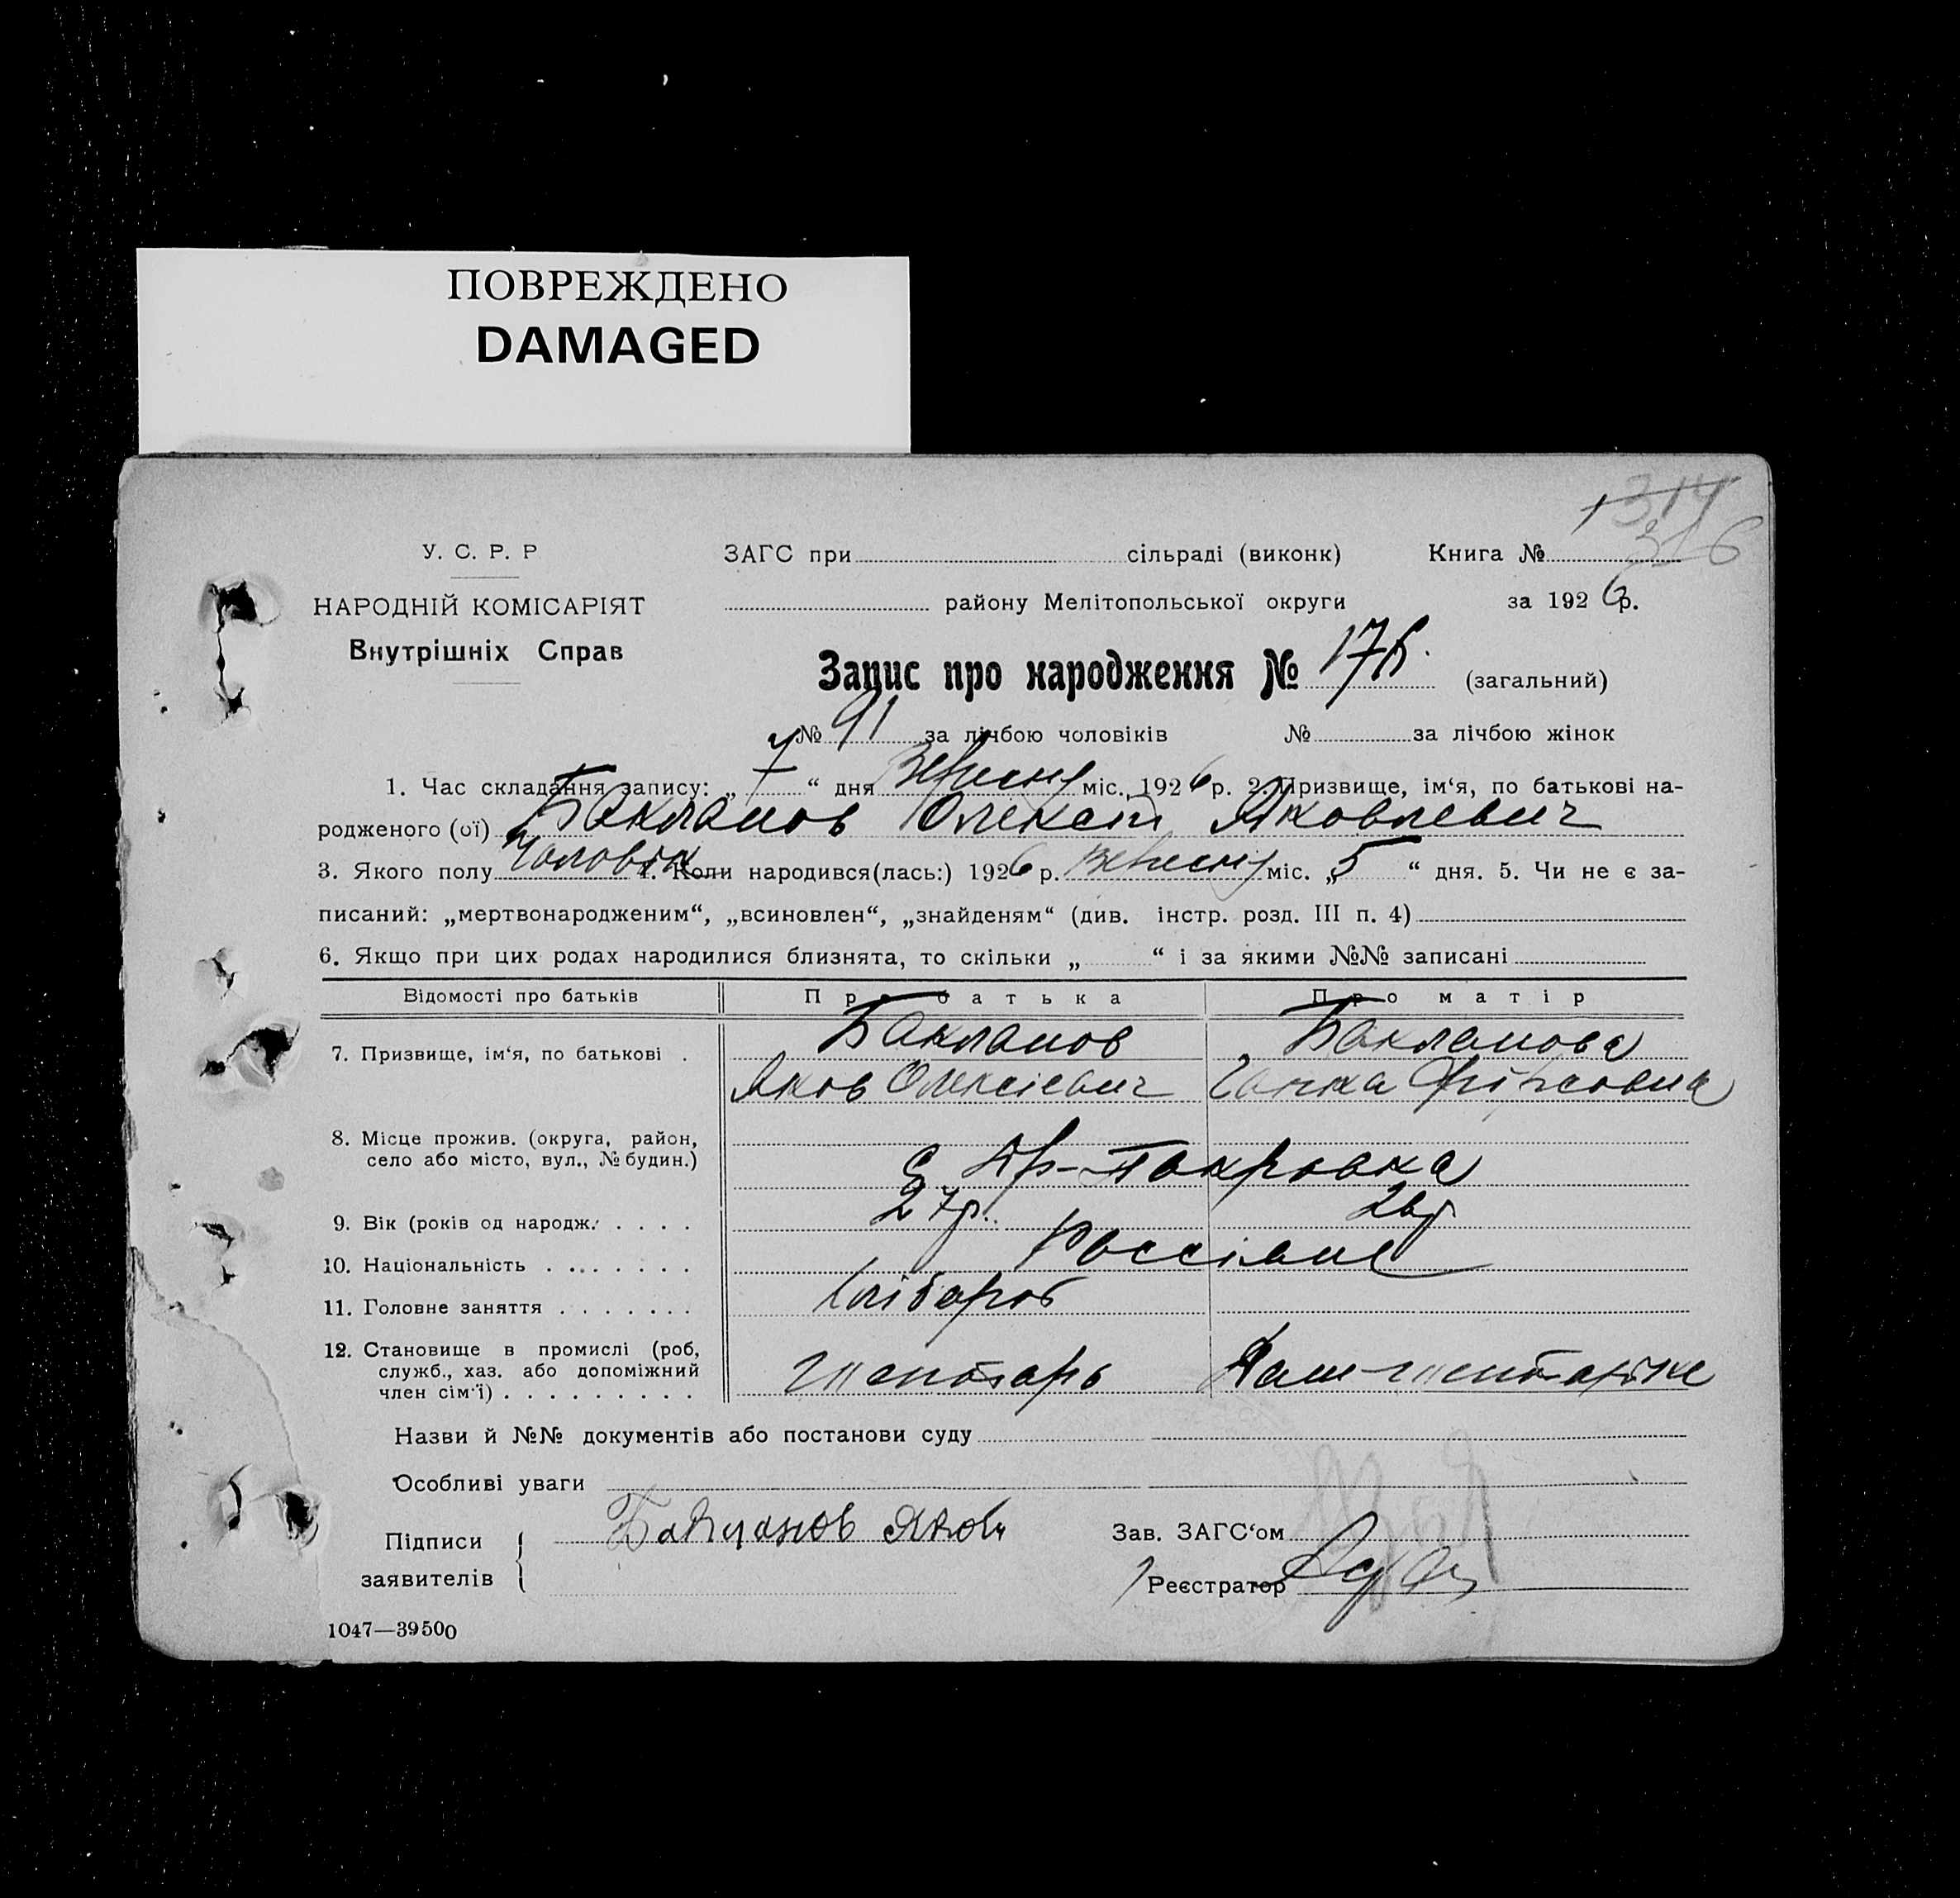 ПОВРЕЖДЕНО
DAMAGED
314
316
У. С. Р. Р
ЗАГС при сільраді (виконк)
Книга №
НАРОДНІЙ КОМІСАРІЯТ
району Мелітопольської округи
за 1926 р.
Внутрішніх Справ
Запис про народження № (загальний)
№ 91 за лічбою чоловіків № за лічбою жінок
1. Час складання запису: „ 7 “ дня Вересня міс., 1926 р. 2. Призвище, ім‘я, по батькові на-
родженого (ої) Бакланов Олексій Яковлевич
3. Якого полу Чоловік 4. Коли народився(лась:) 1926 р. Вересня міс. „ 5 “ дня. 5. Чи не є за-
писаний: „мертвонародженим“, „всиновлен“, „знайденям“ (див. інстр. розд. III п. 4)
6. Якщо при цих родах народилися близнята, то скільки „ “ і за якими №№ записані
Відомості про батьків Про батька Про матір
7. Призвище, ім‘я, по батькові . Бакланов Бакланова
Яков Олексієвич Ганна Фірсовна
8. Місце прожив. (округа, район,
село або місто, вул., № будин.)
с Ор-Покровка
9. Вік (років од народж. . . . . 27 р. 26 р
10. Національність . . . . . . . Россіяне
11. Головне заняття . . . . . . . Хлібороб
12. Становище в промислі (роб,
служб., хаз. або допоміжний
член сім‘ї) . . . . . . . . .
Назви й №№ документів або постанови суду
Особливі уваги
Підписи
заявителів
Бакланов Яков
Зав. ЗАГС‘ом
Реєстратор
1047—39500